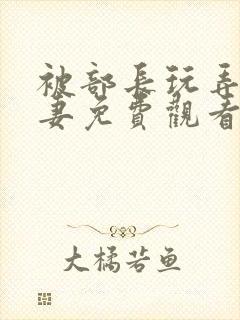 被部長玩弄
妻免費觀看
大橘若鱼